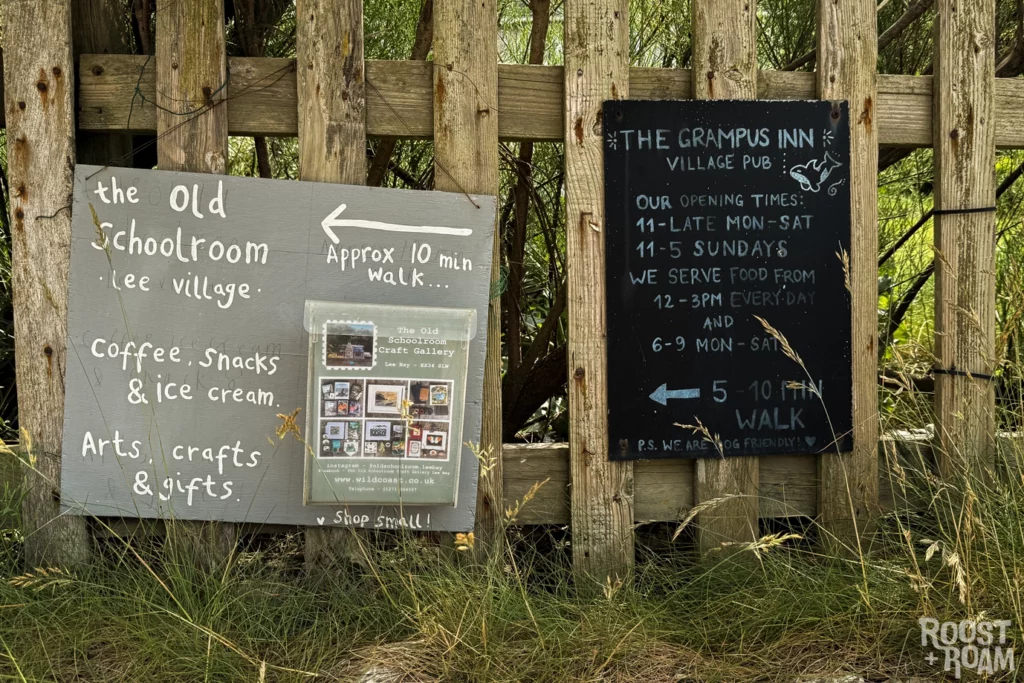 the Old
Schoolroom
. Lee village.
Approx 10 min
walk...
Coffee, snacks
& ice cream.
Arts, crafts
& gifts.
The Old
Schoolroom
Craft Gallery
Lee Bay - EX34 8LW
instagram - @oldschoolroom.leebay
The Old Schoolroom Craft Gallery Lee Bay
www.wildcoast.co.uk
Telephone - 01271
♥ Shop small!
THE GRAMPUS INN
VILLAGE PUB
OUR OPENING TIMES:
11-LATE MON-SAT
11-5 SUNDAYS
WE SERVE FOOD FROM
12-3PM EVERYDAY
AND
6-9 MON-SAT
5-10 MIN
WALK
P.S. WE ARE DOG FRIENDLY! ♥
ROOST
+ ROAM